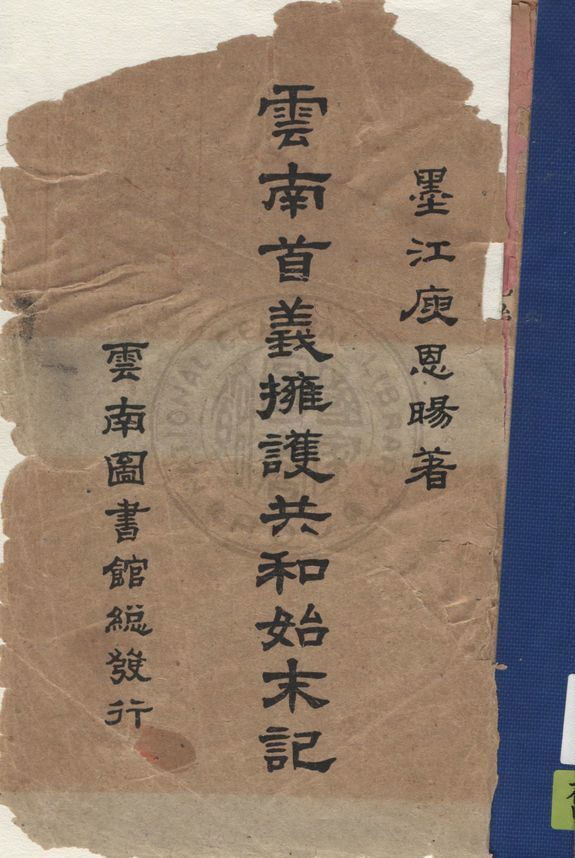 墨江庾恩暘著
雲南首義擁護共和始末記
雲南圖書館總發行